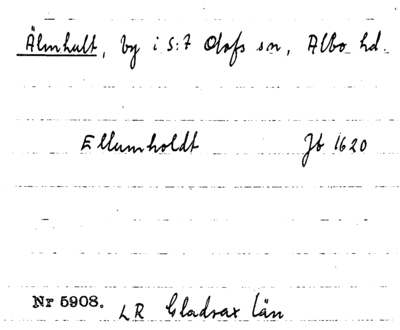 Älmhult, by i S:t Olofs sn, Albo hd.
Ellumholdt Jb 1620
Nr 5908. LR Gladsax län